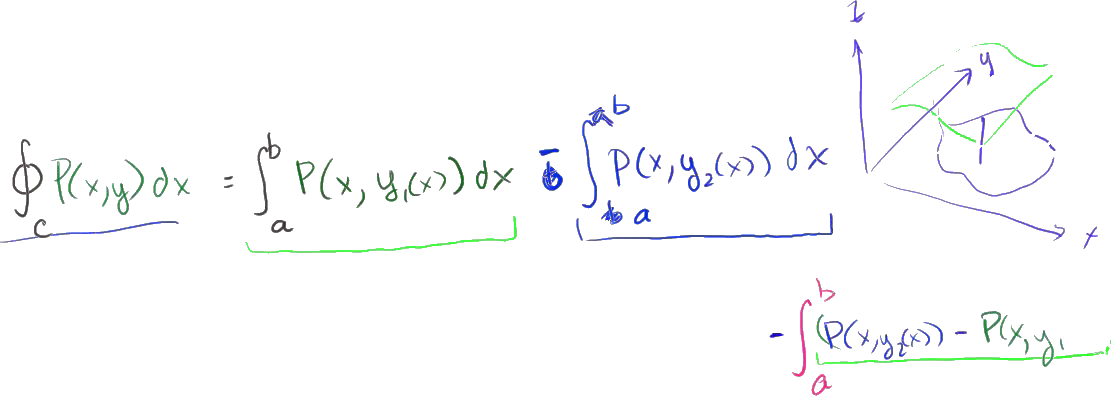 z
y
∮_C P(x,y) dx = ∫_a^b P(x, y₁(x)) dx - ∫_a^b P(x, y₂(x)) dx
x
- ∫_a^b (P(x,y₂(x)) - P(x, y₁